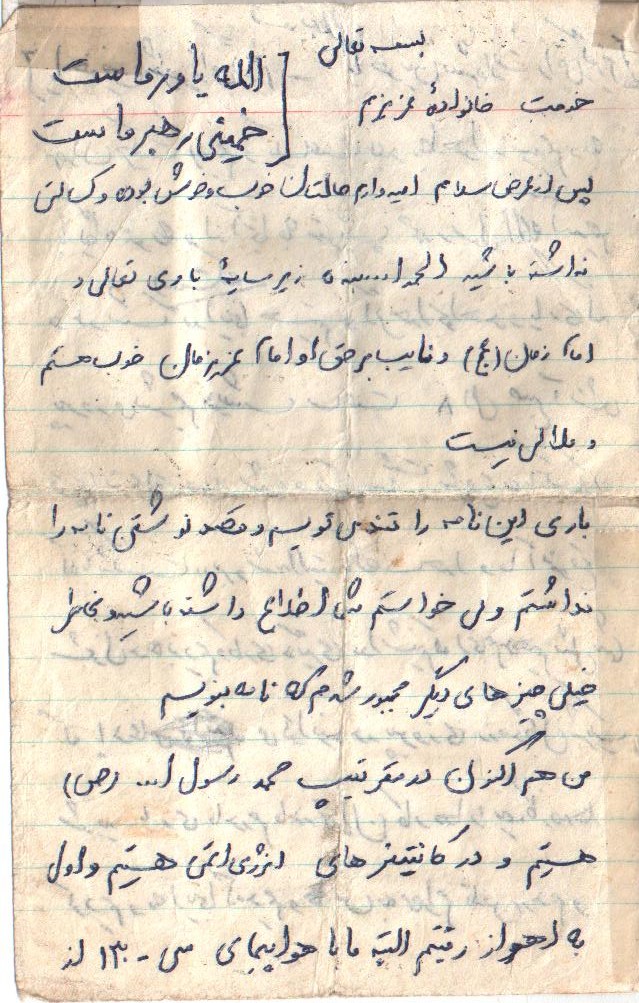 بسمه تعالی
الله یاور ماست
خمینی رهبر ماست
خدمت خانوادهٔ عزیزم
پس از عرض سلام امیدوارم حالتان خوب و خوش بوده و کسالتی
نداشته باشید الحمدا... بنده زیر سایهٔ باری تعالی و
امام زمان (عج) و نایب برحق او امام عزیزمان خوب هستم
و ملالی نیست
باری این نامه را تند می نویسم و قصد نوشتن نامه را
نداشتم ولی خواستم شما اطلاع داشته باشید و بخاطر
خیلی چیزهای دیگر مجبور شدم که نامه بنویسم
من هم اکنون در مقر تیپ محمد رسول ا... (ص)
هستم و در کانتینرهای انرژی اتمی هستیم و اول
به اهواز رفتیم البته ما با هواپیمای سی - ۱۳۰ از